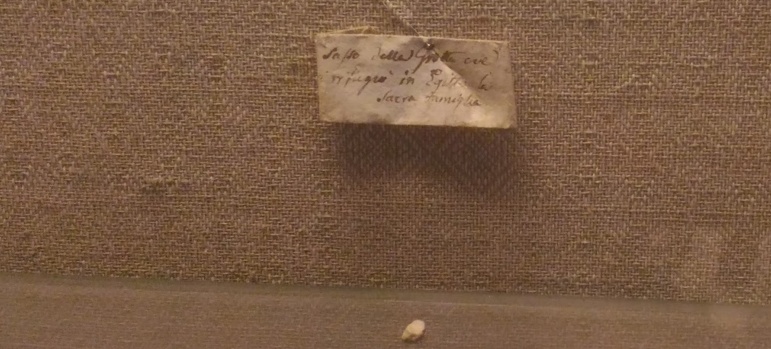 Sasso della Grotta ove
rifugiò in Egitto la
Sacra Famiglia